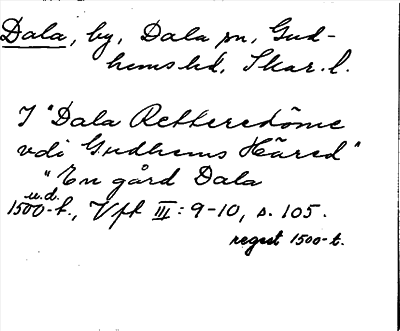 Dala, by, Dala sn, Gud-
hems hd, Skar. l.
I "Dala Retteredöme
vdi Gudhems Häred"
"En gård Dala
u.d.
1500-t., Vft III: 9-10, s. 105.
regest 1500-t.